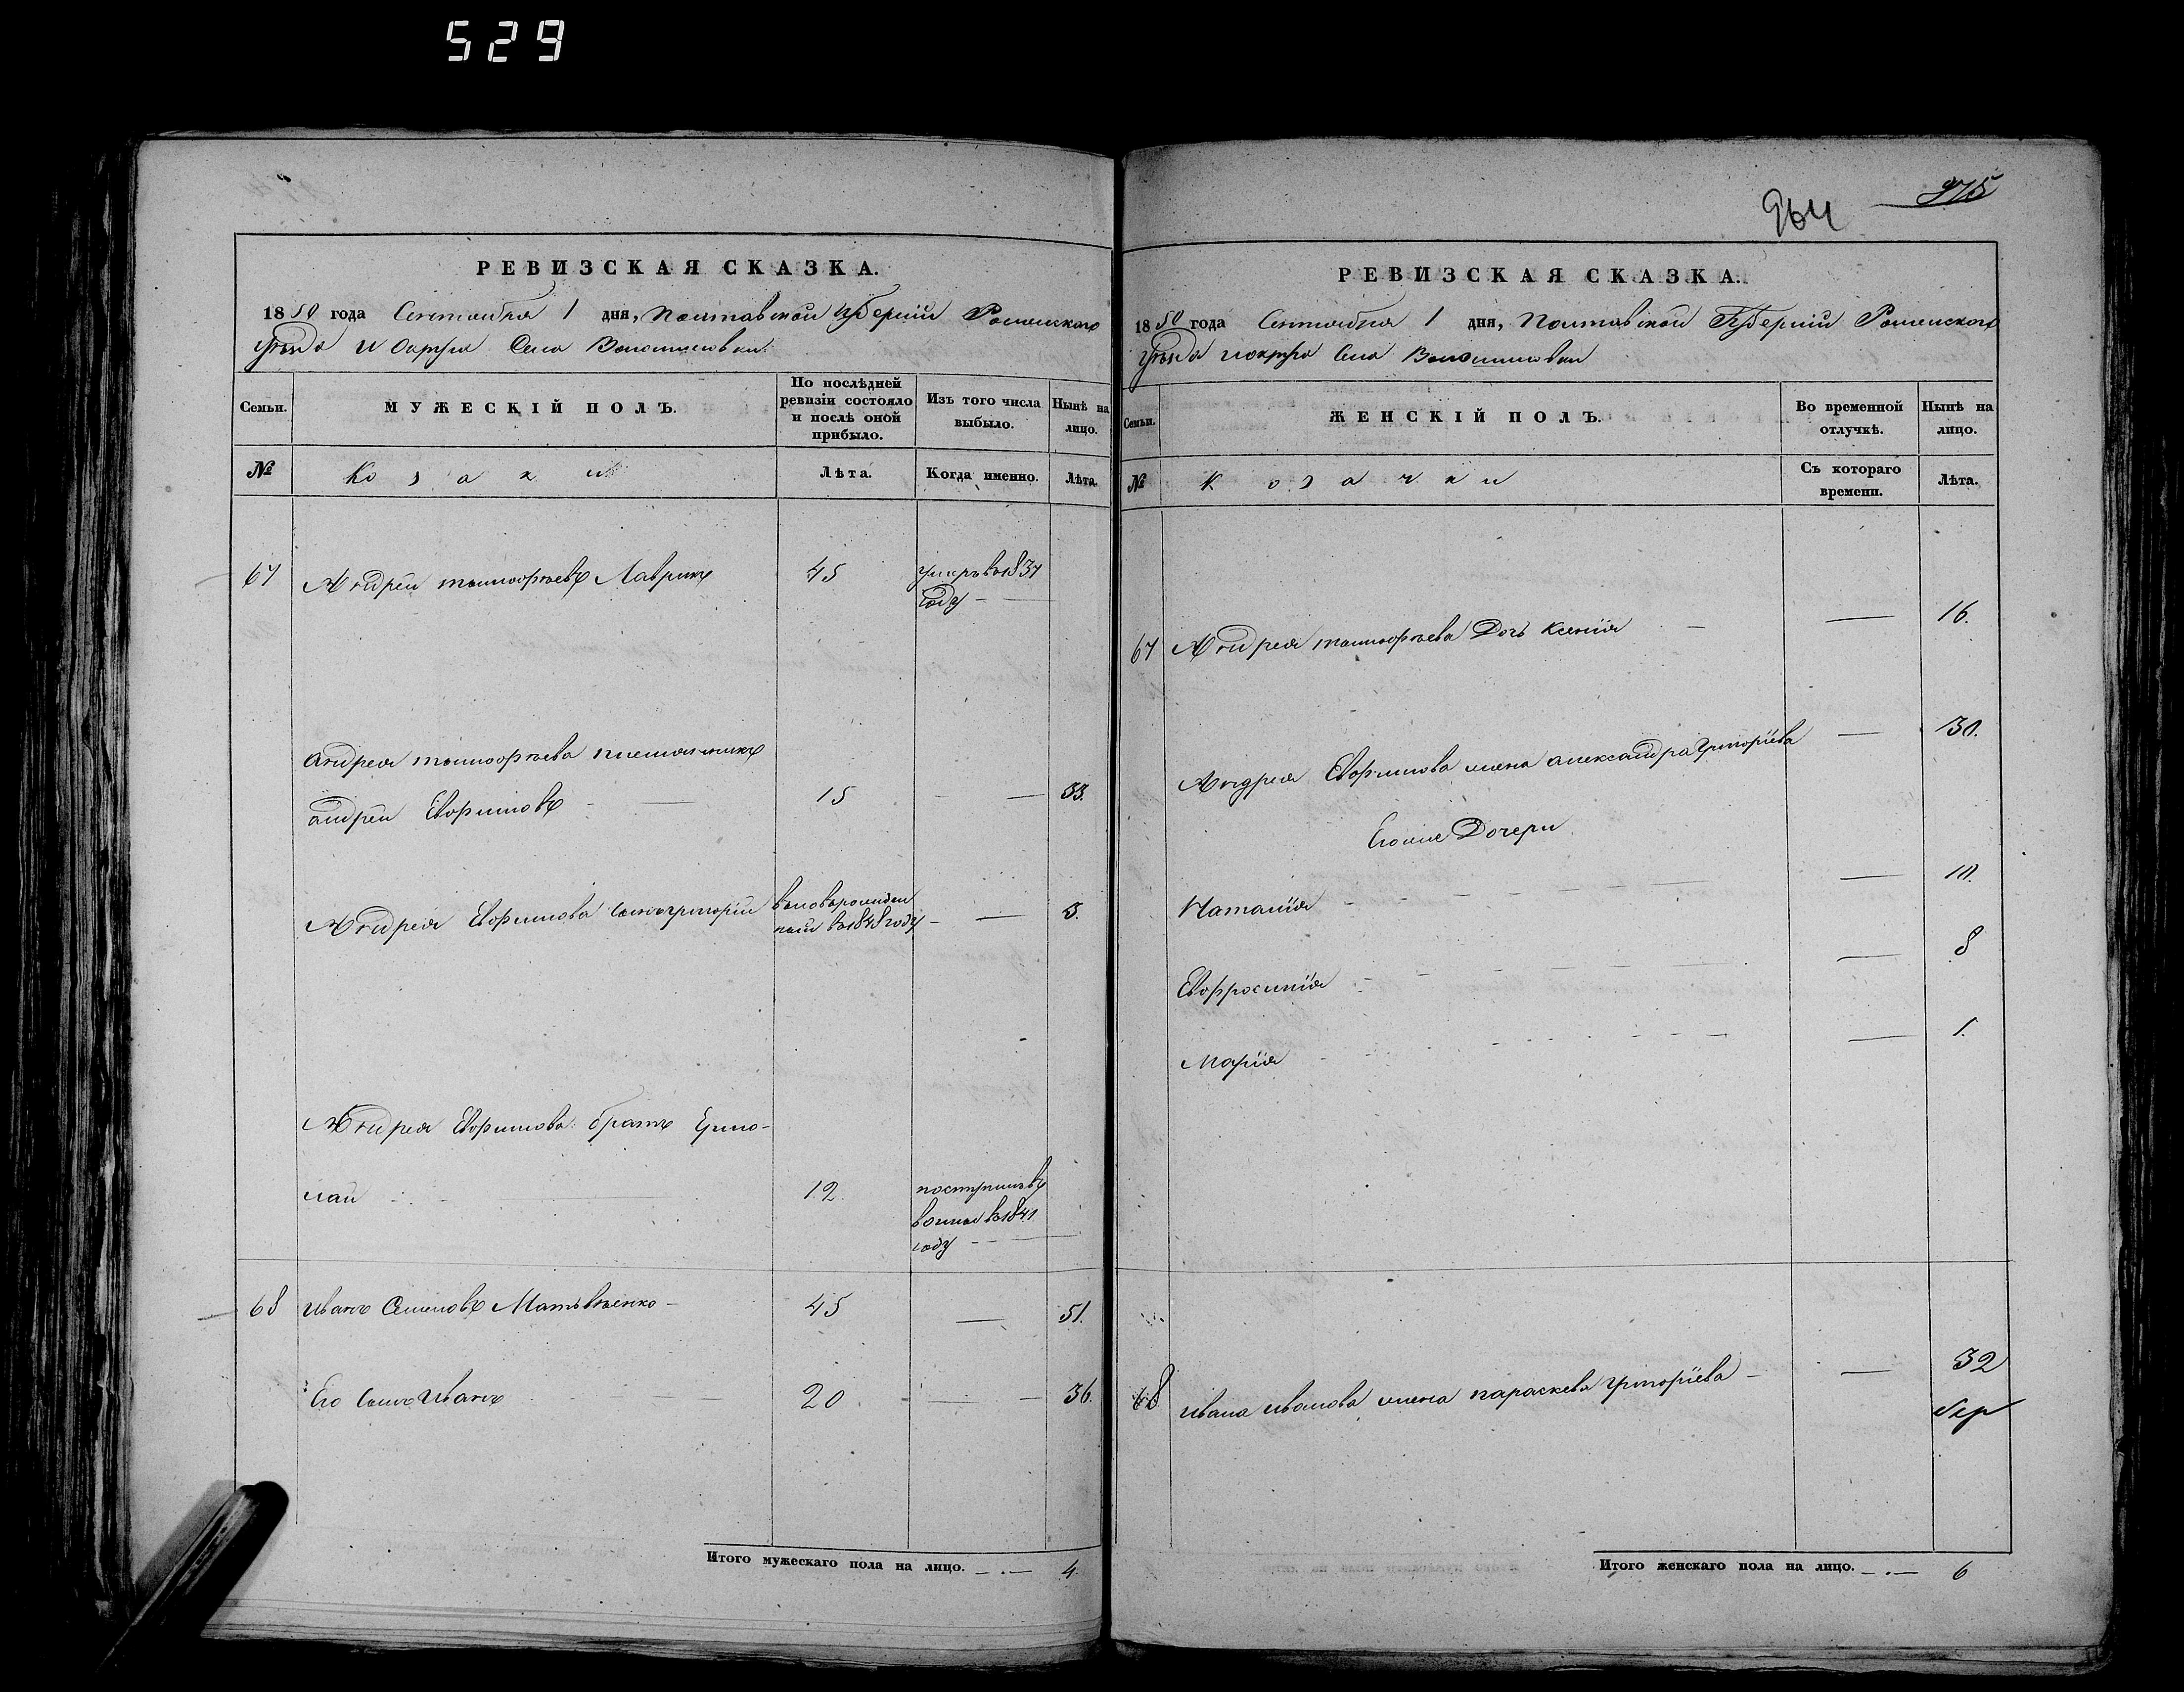 529
РЕВИЗСКАЯ СКАЗКА.
1850 года Сентября 1 дня, Полтавской губерніи Роменского
уѣзда и округа Села Волошиновки.
Семьи.
МУЖЕСКІЙ ПОЛЪ.
По послѣдней ревизіи состояло и послѣ оной прибыло.
Изъ того числа выбыло.
Нынѣ на лицо.
№
Козаки
Лѣта.
Когда именно.
Лѣта.
67 Андрей Тимофѣевъ Лаврикъ 45 умеръ въ 1837
году
Андрея Тимофѣева племянникъ
Андрей Евфимовъ 15 33.
Андрея Евфимова сынъ Григорій вновьрожден 3.
ный въ 1848 году
Андрея Евфимова братъ Ермо-
лай 12. поступилъ въ
воины в 1841
году
68 Иванъ Семеновъ Матвѣенко 45 51.
Его сынъ Иванъ 20 36.
Итого мужескаго пола на лицо. 4.
964 975
РЕВИЗСКАЯ СКАЗКА.
1850 года Сентября 1 дня, Полтавской Губерніи Роменского
уѣзда и округа Села Волошиновки
Семьи.
ЖЕНСКІЙ ПОЛЪ.
Во временной отлучкѣ.
Нынѣ на лицо.
№
Козачки
Съ котораго времени.
Лѣта.
67 Андрея Тимофѣева Дочь Ксенія 16.
Андрея Евфимова жена Александра Григоріева 30.
Егоже Дочери
Наталія 10.
Евфросинія 8
Марія 1.
68 Ивана Иванова жена Параскева Григоріева 32
Итого женскаго пола на лицо. 6